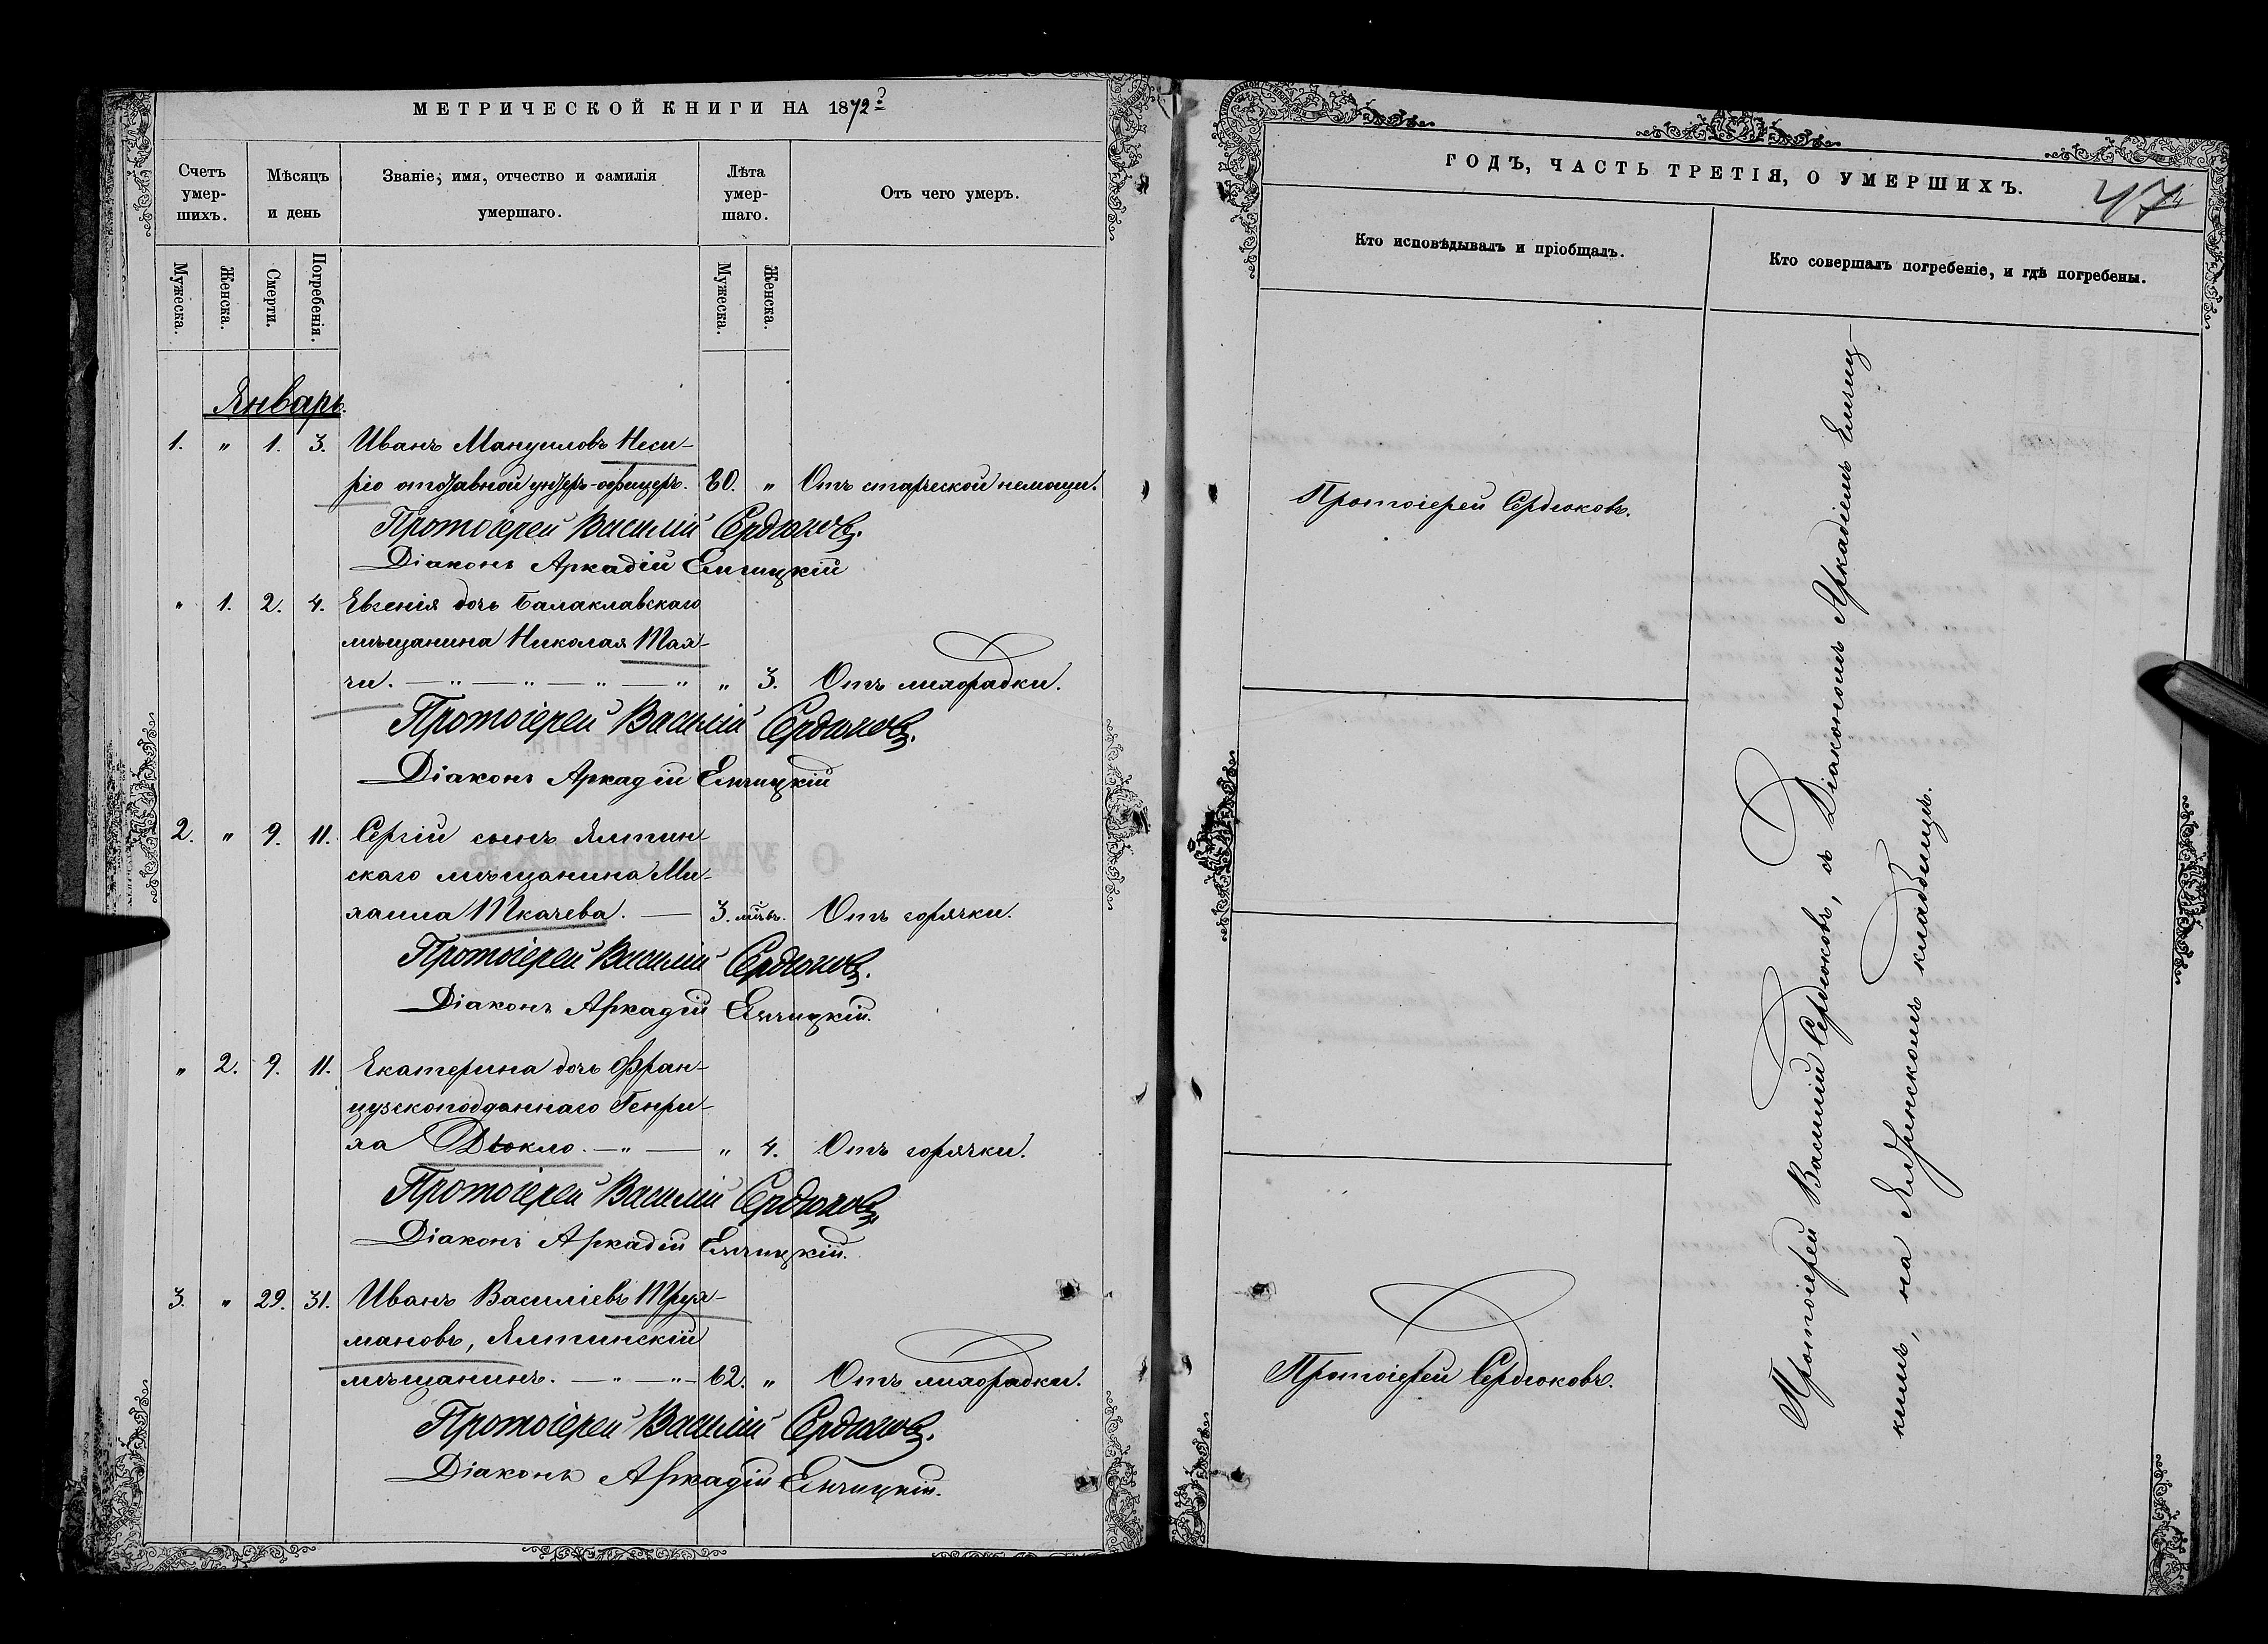 МЕТРИЧЕСКОЙ КНИГИ НА 1872й
Счетъ умер-шихъ.
Мѣсяцъ и день
Званіе, имя, отчество и фамилія умершаго.
Лѣта умер-шаго.
Отъ чего умеръ.
Мужеска.
Женска.
Смерти.
Погребенія.
Мужеска.
Женска.
Январь.
1. " 1. 3. Иванъ Мануиловъ Неси-
ріо отставной унтеръ-офицеръ. 80. " Отъ старческой немощи.
Протоіерей Василій Сердюковъ.
Діаконъ Аркадій Енчицкій
" 1. 2. 4. Евгенія дочь Балаклавскаго
мѣщанина Николая Тах-
чи. — " — " — " — " " 3. Отъ лихорадки.
Протоіерей Василій Сердюковъ.
Діаконъ Аркадій Енчицкій
2. " 9. 11. Сергій сынъ Ялтин-
скаго мѣщанина Ми-
хаила Ткачева. — 3. мѣсъ. Отъ горячки.
Протоіерей Василій Сердюковъ.
Діаконъ Аркадій Енчицкій.
" 2. 9. 11. Екатерина дочь Фран-
цузскоподданнаго Генри-
ха Дюкло. — " — " 4. Отъ горячки.
Протоіерей Василій Сердюковъ.
Діаконъ Аркадій Енчицкій.
3. " 29. 31. Иванъ Василіевъ Трух-
мановъ, Ялтинскій
мѣщанинъ. — " — " — 62. " Отъ лихорадки.
Протоіерей Василій Сердюковъ.
Діаконъ Аркадій Енчицкій.
ГОДЪ, ЧАСТЬ ТРЕТІЯ, О УМЕРШИХЪ.
47
Кто исповѣдывалъ и пріобщалъ.
Кто совершалъ погребеніе, и гдѣ погребены.
Протоіерей Сердюковъ.
Протоіерей Сердюковъ.
Протоіерей Василій Сердюковъ, съ Діакономъ Аркадіемъ Енчиц-
кимъ, на Ялтинскомъ кладбищѣ.